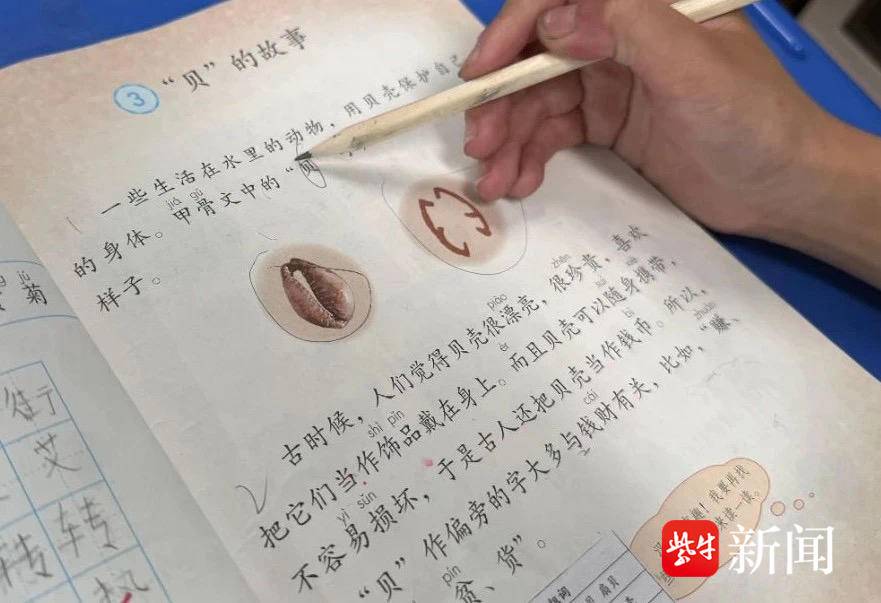 3 “贝”的故事
一些生活在水里的动物，用贝壳保护自己
jiǎ gǔ
的身体。甲骨文中的“贝
样子。
piào zhēn
古时候，人们觉得贝壳很漂亮，很珍贵，喜欢
shì pǐn ér
把它们当作饰品戴在身上。而且贝壳可以随身携带，
yì sǔn bì
不容易损坏，于是古人还把贝壳当作钱币。所以，
cái zhuàn
“贝”作偏旁的字大多与钱财有关，比如，“赚、
pín
贫、货”。
趣！我要再找
来读一读。
菊
艾
转 转
紫牛 新闻